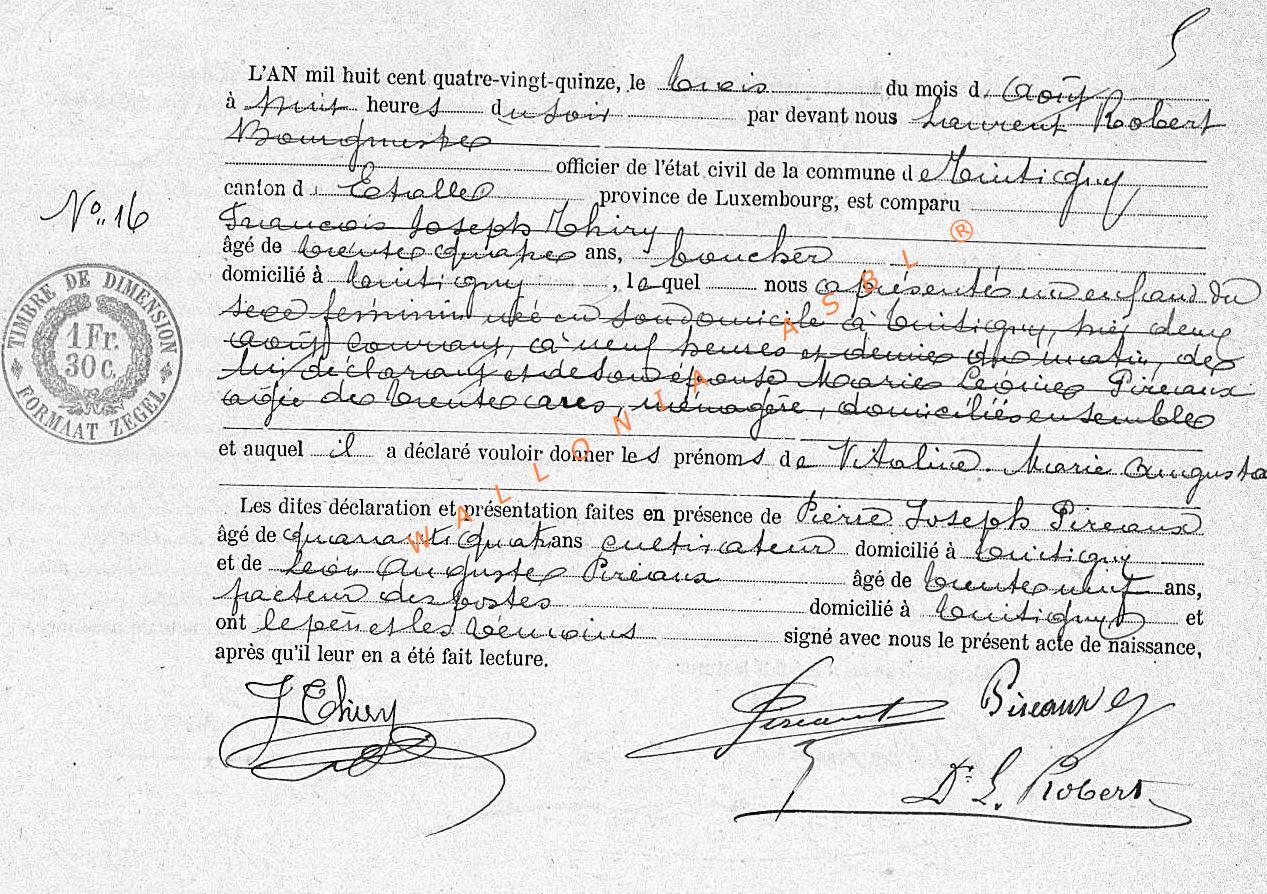 5
L'AN mil huit cent quatre-vingt-quinze, le trois du mois d' Août
à huit heures du soir par devant nous Laurent Robert
Bourgmestre
officier de l'état civil de la commune de Tintigny,
canton d' Etalle province de Luxembourg, est comparu
No. 16
François Joseph Thiry
âgé de trente quatre ans, boucher
domicilié à Tintigny, lequel nous a présenté un enfant du
sexe féminin née en son domicile à Tintigny, hier deux
août courant, à neuf heures et demie du matin, de
lui déclarant et de son épouse Marie Léonie Piréaux
âgée de trente ans, ménagère, domiciliés ensemble
et auquel il a déclaré vouloir donner les prénoms de Vitaline Marie Augusta
Les dites déclaration et présentation faites en présence de Pierre Joseph Piréaux
âgé de quarante quatre ans cultivateur domicilié à Tintigny
et de Léon Auguste Piréaux âgé de trente neuf ans,
facteur des postes domicilié à Tintigny et
ont le père et les témoins signé avec nous le présent acte de naissance,
après qu'il leur en a été fait lecture.
TIMBRE DE DIMENSION
1 Fr.
30 c.
FORMAAT ZEGEL
WALLONIA ASBL ®
J Thiry
Pireaux
Dr L. Robert